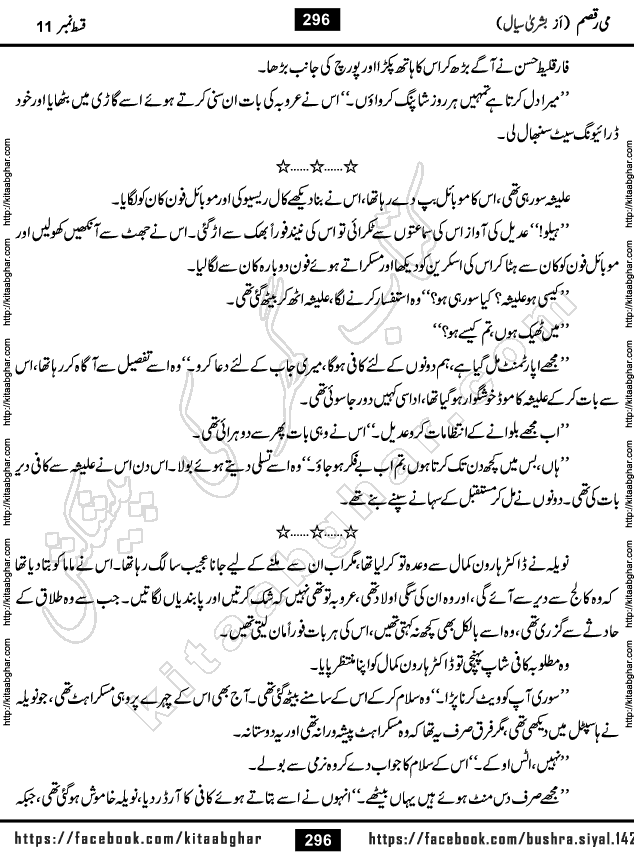 می رقصم (از بشریٰ سیال)
296
قسط نمبر 11
فارقلیط حسن نے آگے بڑھ کر اس کا ہاتھ پکڑا اور پورچ کی جانب بڑھا۔
’’میرا دل کرتا ہے تمہیں ہر روز شاپنگ کرواؤں۔‘‘ اس نے عروبہ کی بات ان سنی کرتے ہوئے اسے گاڑی میں بٹھایا اور خود
ڈرائیونگ سیٹ سنبھال لی۔
☆......☆......☆
علیشہ سو رہی تھی، اس کا موبائل بپ دے رہا تھا، اس نے بنا دیکھے کال ریسیو کی اور موبائل فون کان کو لگایا۔
’’ہیلو!‘‘ عدیل کی آواز اس کی سماعتوں سے ٹکرائی تو اس کی نیند فوراً بھک سے اڑ گئی۔ اس نے جھٹ سے آنکھیں کھولیں اور
موبائل فون کو کان سے ہٹا کر اس کی اسکرین کو دیکھا اور مسکراتے ہوئے فون دوبارہ کان سے لگا لیا۔
’’کیسی ہو علیشہ؟ کیا سو رہی ہو؟‘‘ وہ استفسار کرنے لگا، علیشہ اٹھ کر بیٹھ گئی تھی۔
’’میں ٹھیک ہوں، تم کیسے ہو؟‘‘
’’مجھے اپارٹمنٹ مل گیا ہے، ہم دونوں کے لئے کافی ہوگا، میری جاب کے لئے دعا کرو۔‘‘ وہ اسے تفصیل سے آگاہ کر رہا تھا، اس
سے بات کر کے علیشہ کا موڈ خوشگوار ہو گیا تھا، اداسی کہیں دور جا سوئی تھی۔
’’اب مجھے بلوانے کے انتظامات کرو عدیل۔‘‘ اس نے وہی بات پھر سے دوہرائی تھی۔
’’ہاں، بس میں کچھ دن تک کرتا ہوں، تم اب بے فکر ہو جاؤ۔‘‘ وہ اسے تسلی دیتے ہوئے بولا۔ اس دن اس نے علیشہ سے کافی دیر
بات کی تھی۔ دونوں نے مل کر مستقبل کے سہانے سپنے بنے تھے۔
☆......☆......☆
نویلہ نے ڈاکٹر ہارون کمال سے وعدہ تو کر لیا تھا، مگر اب ان سے ملنے کے لیے جانا عجیب سا لگ رہا تھا۔ اس نے ماما کو بتا دیا تھا
کہ وہ کالج سے دیر سے آئے گی، اور وہ ان کی سگی اولاد تھی، عروبہ تو تھی نہیں کہ شک کرتیں اور پابندیاں لگاتیں۔ جب سے وہ طلاق کے
حادثے سے گزری تھی، وہ اسے بالکل بھی کچھ نہ کہتی تھیں، اس کی ہر بات فوراً مان لیتی تھیں۔
وہ مطلوبہ کافی شاپ پہنچی تو ڈاکٹر ہارون کمال کو اپنا منتظر پایا۔
’’سوری آپ کو ویٹ کرنا پڑا۔‘‘ وہ سلام کر کے اس کے سامنے بیٹھ گئی تھی۔ آج بھی اس کے چہرے پر وہی مسکراہٹ تھی، جو نویلہ
نے ہاسپٹل میں دیکھی تھی، مگر فرق صرف یہ تھا کہ وہ مسکراہٹ پیشہ ورانہ تھی اور یہ دوستانہ۔
’’نہیں، اٹس اوکے۔‘‘ اس کے سلام کا جواب دے کر وہ نرمی سے بولے۔
’’مجھے صرف دس منٹ ہوئے ہیں یہاں بیٹھے۔‘‘ انہوں نے اسے بتاتے ہوئے کافی کا آرڈر دیا، نویلہ خاموش ہو گئی تھی، جبکہ
http://kitaabghar.com http://kitaabghar.com http://kitaabghar.com http://kitaabghar.com http://kitaabghar.com http://kitaabghar.com
http://kitaabghar.com http://kitaabghar.com http://kitaabghar.com http://kitaabghar.com http://kitaabghar.com http://kitaabghar.com
کتاب گھر کی پیشکش
kitaabghar.com
https://facebook.com/kitaabghar
296
https://facebook.com/bushra.siyal.142